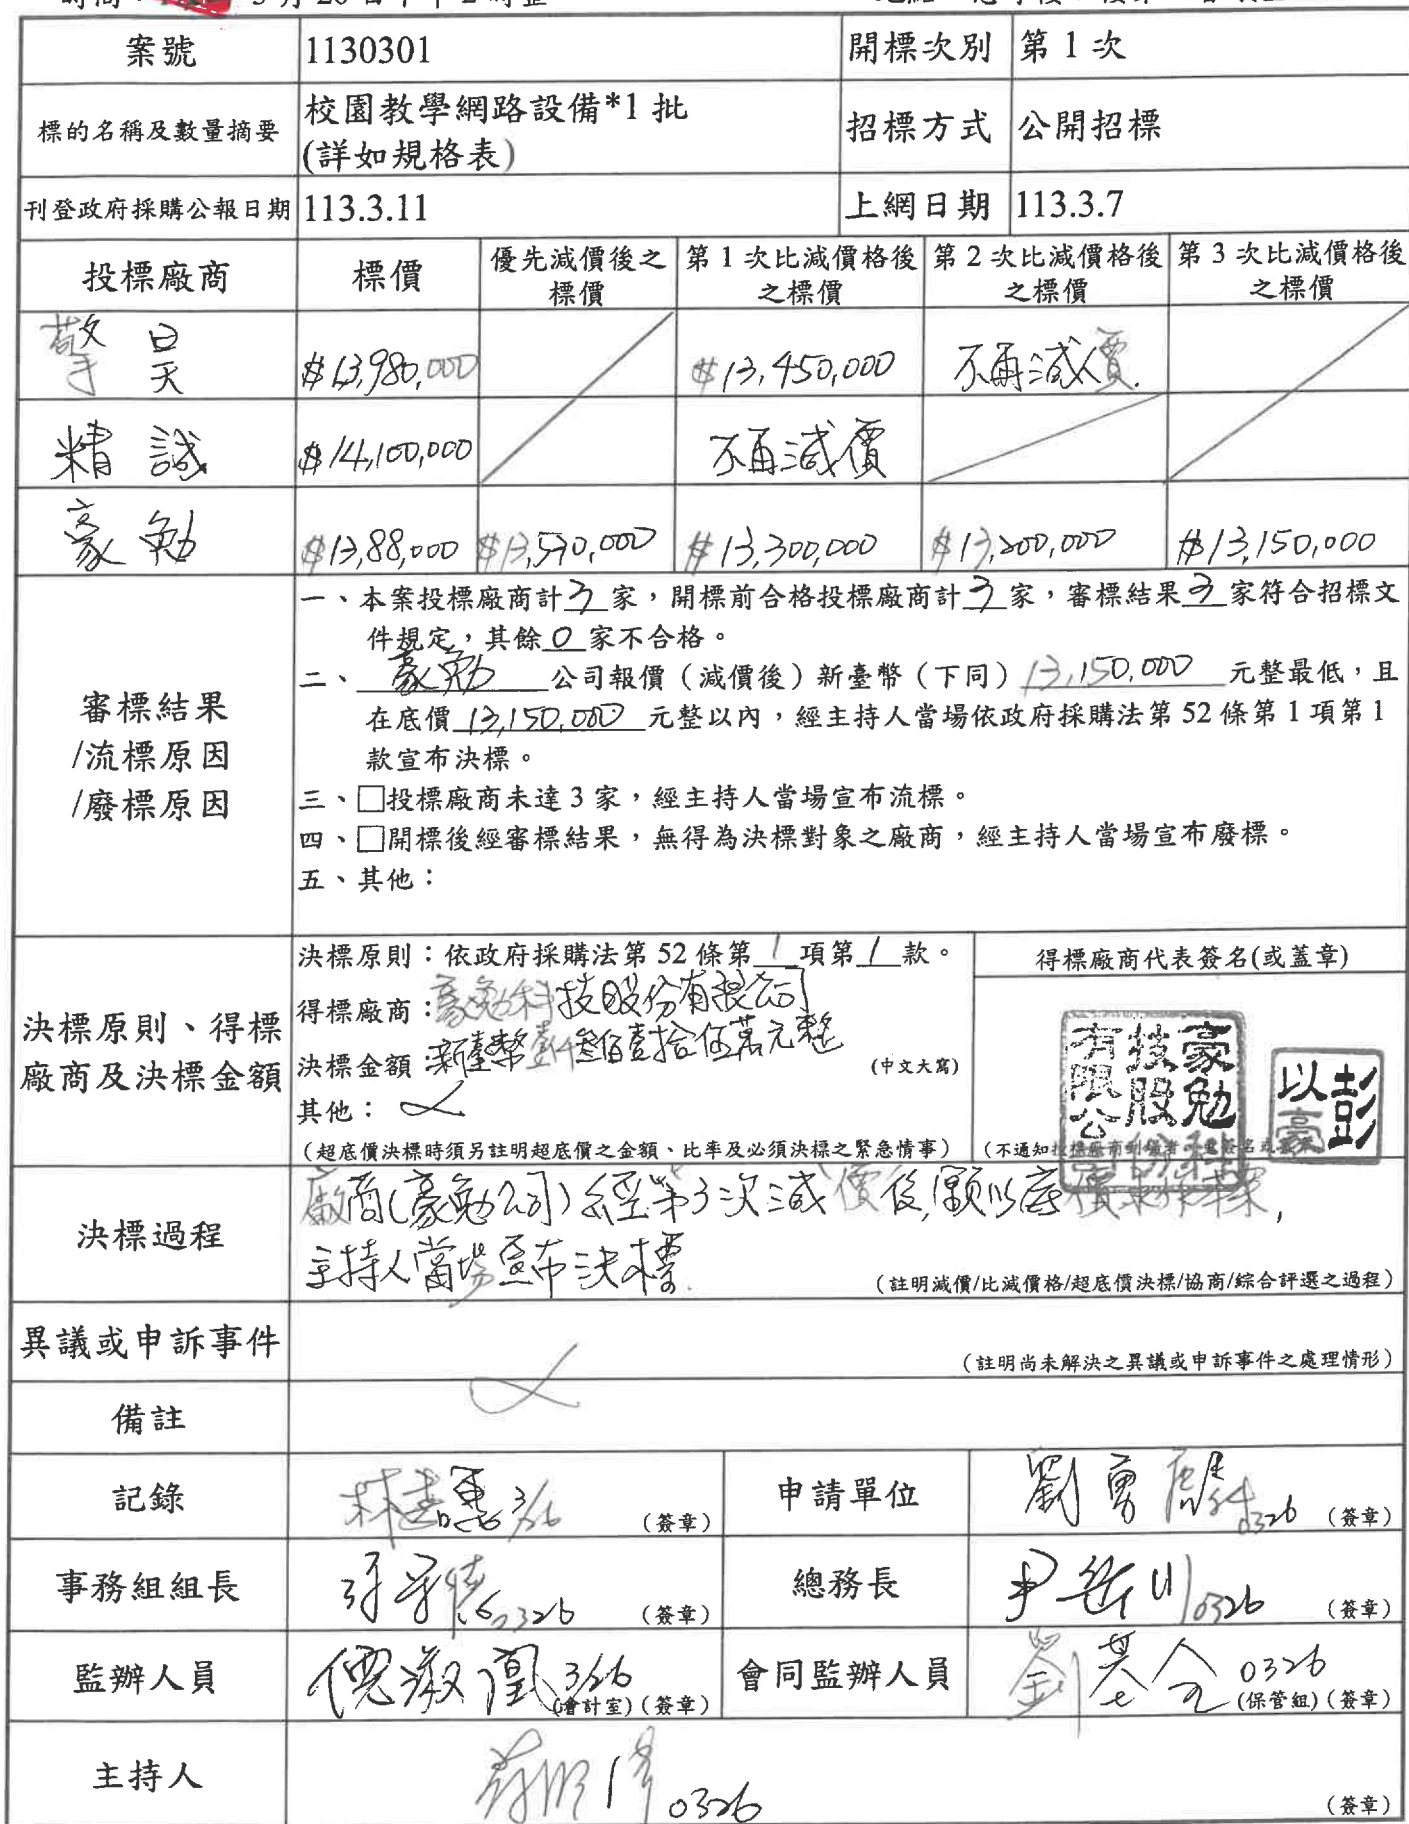 案號 1130301 開標次別 第 1 次
標的名稱及數量摘要 校園教學網路設備*1 批
(詳如規格表) 招標方式 公開招標
刊登政府採購公報日期 113.3.11 上網日期 113.3.7
投標廠商 標價 優先減價後之標價 第 1 次比減價格後之標價 第 2 次比減價格後之標價 第 3 次比減價格後之標價
擎昊 $13,980,000 $13,450,000 不再減價
精誠 $14,100,000 不再減價
豪勉 $13,88,000 $13,570,000 $13,300,000 $13,200,000 $13,150,000
審標結果
/流標原因
/廢標原因
一、本案投標廠商計 3 家,開標前合格投標廠商計 3 家,審標結果 3 家符合招標文
件規定,其餘 0 家不合格。
二、豪勉公司報價(減價後)新臺幣(下同)13,150,000 元整最低,且
在底價 13,150,000 元整以內,經主持人當場依政府採購法第 52 條第 1 項第 1
款宣布決標。
三、□投標廠商未達 3 家,經主持人當場宣布流標。
四、□開標後經審標結果,無得為決標對象之廠商,經主持人當場宣布廢標。
五、其他:
決標原則、得標
廠商及決標金額
決標原則:依政府採購法第 52 條第 1 項第 1 款。
得標廠商:豪勉科技股份有限公司
決標金額 新臺幣壹仟叁佰壹拾伍萬元整 (中文大寫)
其他:
(超底價決標時須另註明超底價之金額、比率及必須決標之緊急情事)
得標廠商代表簽名(或蓋章)
豪勉科技股份有限公司
彭以豪
(不通知投標廠商到場者
決標過程
廠商(豪勉公司)經第3次減價後,願以底價承作本案,
主持人當場宣布決標.
(註明減價/比減價格/超底價決標/協商/綜合評選之過程)
異議或申訴事件 (註明尚未解決之異議或申訴事件之處理情形)
備註
記錄 3/26 (簽章) 申請單位 劉勇 0326 (簽章)
事務組組長 0326 (簽章) 總務長 尹 川 0326 (簽章)
監辦人員 倪淑凰 3/26 (會計室)(簽章) 會同監辦人員 劉基全 0326 (保管組)(簽章)
主持人 0326 (簽章)